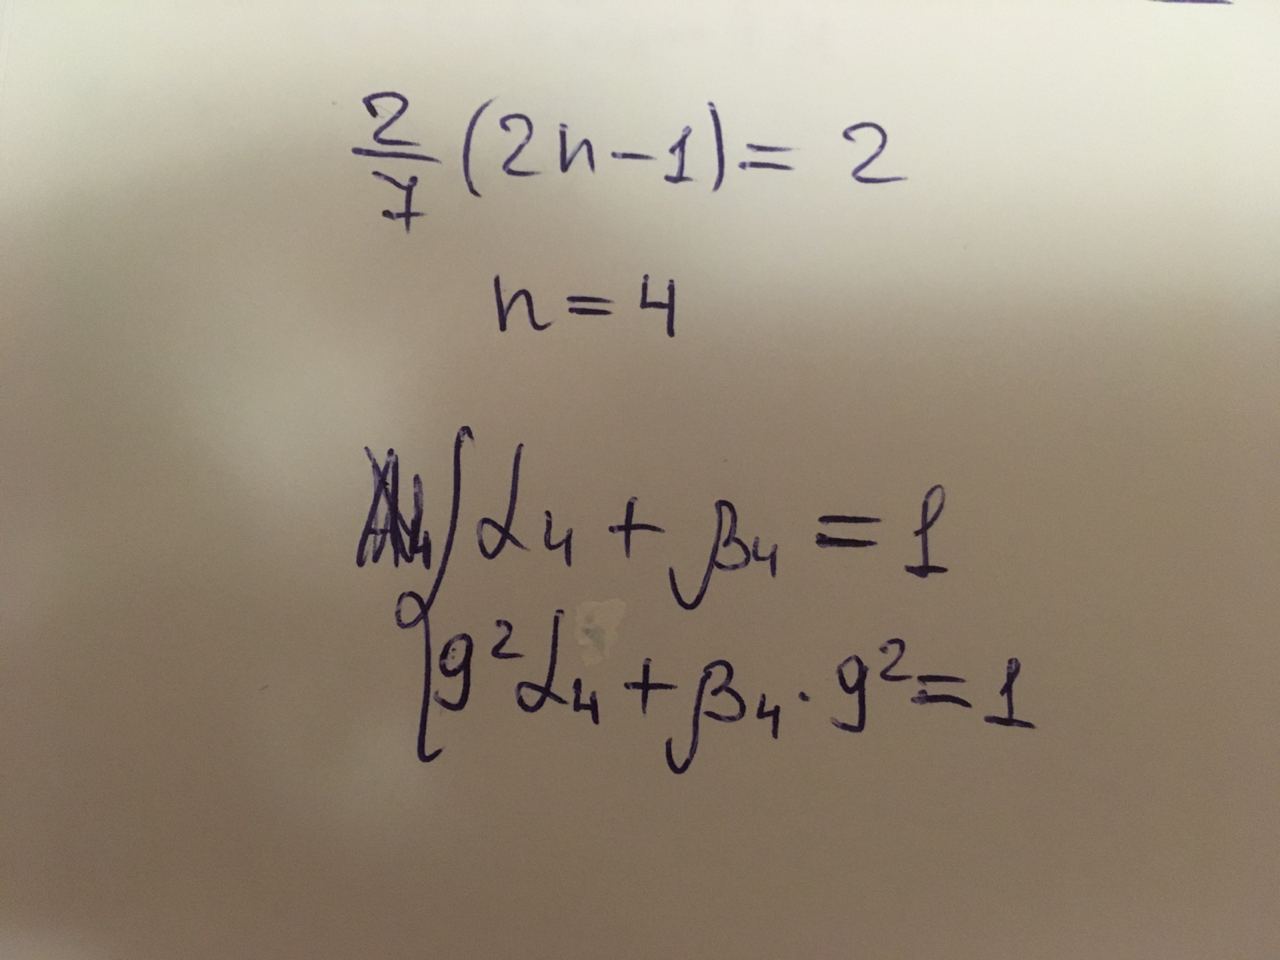 2/7 (2n-1) = 2
n = 4
{ α₄ + β₄ = 1
9² α₄ + β₄ · 9² = 1